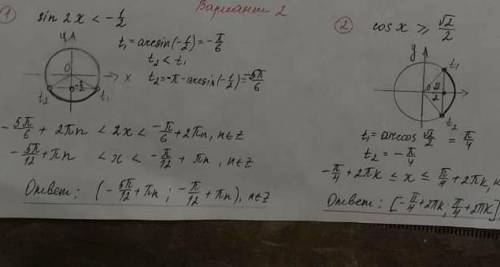 Вариант 2
① sin 2x < -1/2
y
t₁ = arcsin(-1/2) = -π/6
t₂ < t₁
t₂ = -π - arcsin(-1/2) = -5π/6
0
x
-1/2
t₂
t₁
-5π/6 + 2πn < 2x < -π/6 + 2πn, n∈Z
-5π/12 + πn < x < -π/12 + πn, n∈Z
Ответ: (-5π/12 + πn ; -π/12 + πn), n∈Z
② cos x ⩾ √2/2
y
t₁
0
√2/2
t₂
t₁ = arccos √2/2 = π/4
t₂ = -π/4
-π/4 + 2πk ≤ x ≤ π/4 + 2πk, k
Ответ: [-π/4 + 2πk, π/4 + 2πk]